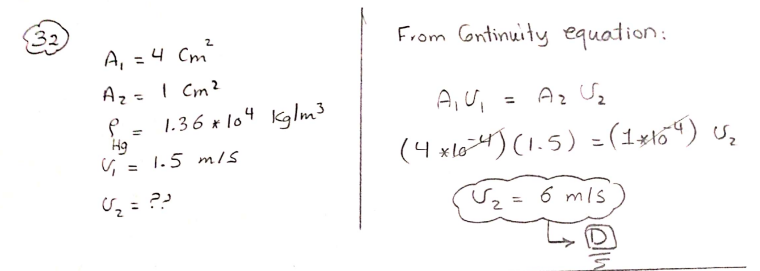 32
A₁ = 4 Cm²
A₂ = 1 Cm²
ρ_Hg = 1.36 * 10⁴ kg/m³
υ₁ = 1.5 m/s
υ₂ = ??
From Continuity equation:
A₁ υ₁ = A₂ υ₂
(4 *10⁻⁴) (1.5) = (1*10⁻⁴) υ₂
υ₂ = 6 m/s
D